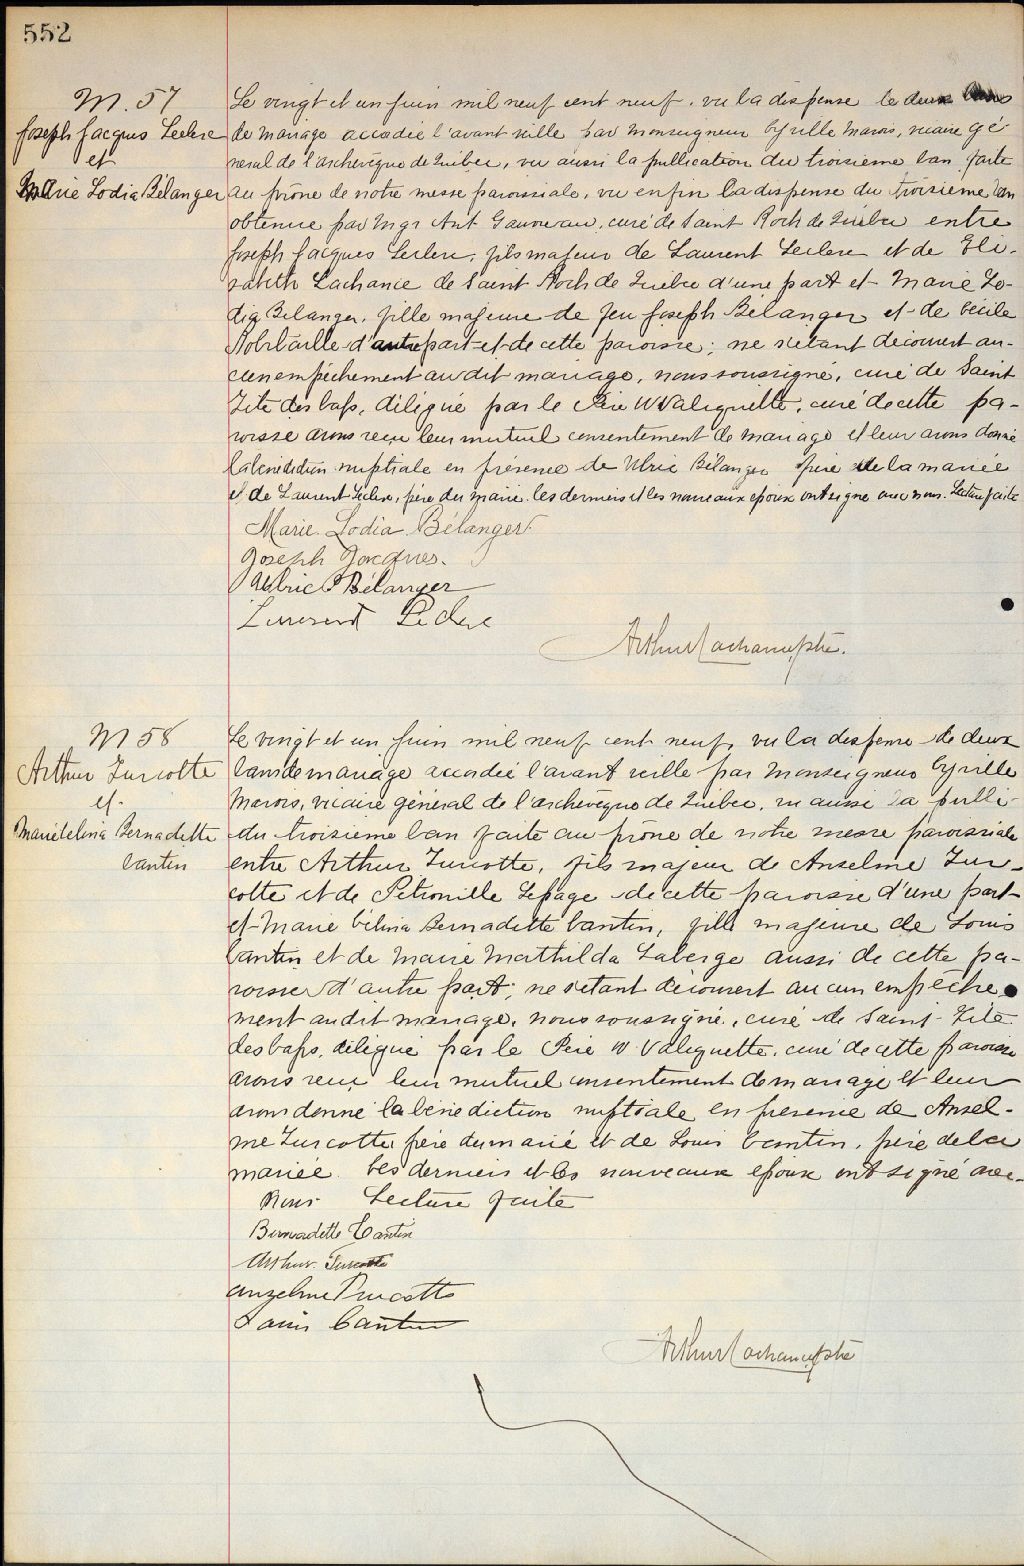 552
M. 57
Joseph Jacques Leclerc
et
Marie Lodia Bélanger
Le vingt et un juin mil neuf cent neuf, vu la dispense de deux bans
de mariage accordée l'avant veille par Monseigneur Cyrille Marois, vicaire gé
néral de l'archevêque de Québec, vu aussi la publication du troisième ban faite
au prône de notre messe paroissiale, vu enfin la dispense du troisième ban
obtenue par Mgr Ant Gauvreau, curé de Saint Roch de Québec entre
Joseph Jacques Leclerc, fils majeur de Laurent Leclerc et de Eli-
zabeth Lachance de Saint Roch de Québec d'une part et Marie Lo-
dia Bélanger, fille majeure de feu Joseph Bélanger et de Cécile
Robitaille d'autre part et de cette paroisse; ne s'étant découvert au-
cun empêchement au dit mariage, nous soussigné, curé de Saint
Zite des Caps, délégué par le Père W Valiquette, curé de cette pa-
roisse avons reçu leur mutuel consentement de mariage et leur avons donné
la bénédiction nuptiale en présence de Ulric Bélanger frère de la mariée
et de Laurent Leclerc, père du marié. Ces derniers et les nouveaux époux ont signé avec nous. Lecture faite
Marie Lodia Bélanger
Joseph Jacques.
Aulric Bélanger
Laurent Leclerc
Arthur Lachance ptre.
M 58
Arthur Turcotte
et
Marie Célina Bernadette
Cantin
Le vingt et un juin mil neuf cent neuf, vu la dispense de deux
bans de mariage accordée l'avant veille par Monseigneur Cyrille
Marois, vicaire général de l'archevêque de Québec, vu aussi la publi-
du troisième ban faite au prône de notre messe paroissiale
entre Arthur Turcotte, fils majeur de Anselme Tur-
cotte et de Pétronille Lepage de cette paroisse d'une part
et Marie Célina Bernadette Cantin, fille majeure de Louis
Cantin et de Marie Mathilda Laberge aussi de cette pa-
roisse d'autre part; ne s'étant découvert aucun empêche-
ment au dit mariage, nous soussigné, curé de Saint-Zite
des Caps, délégué par le Père W Valiquette, curé de cette paroisse
avons reçu leur mutuel consentement de mariage et leur
avons donné la bénédiction nuptiale en présence de Ansel-
me Turcotte père du marié et de Louis Cantin, père de la
mariée. Ces derniers et les nouveaux époux ont signé avec
nous. Lecture faite
Bernadette Cantin
Arthur Turcotte
Anzelme Turcotte
Louis Cantin
Arthur Lachance ptre